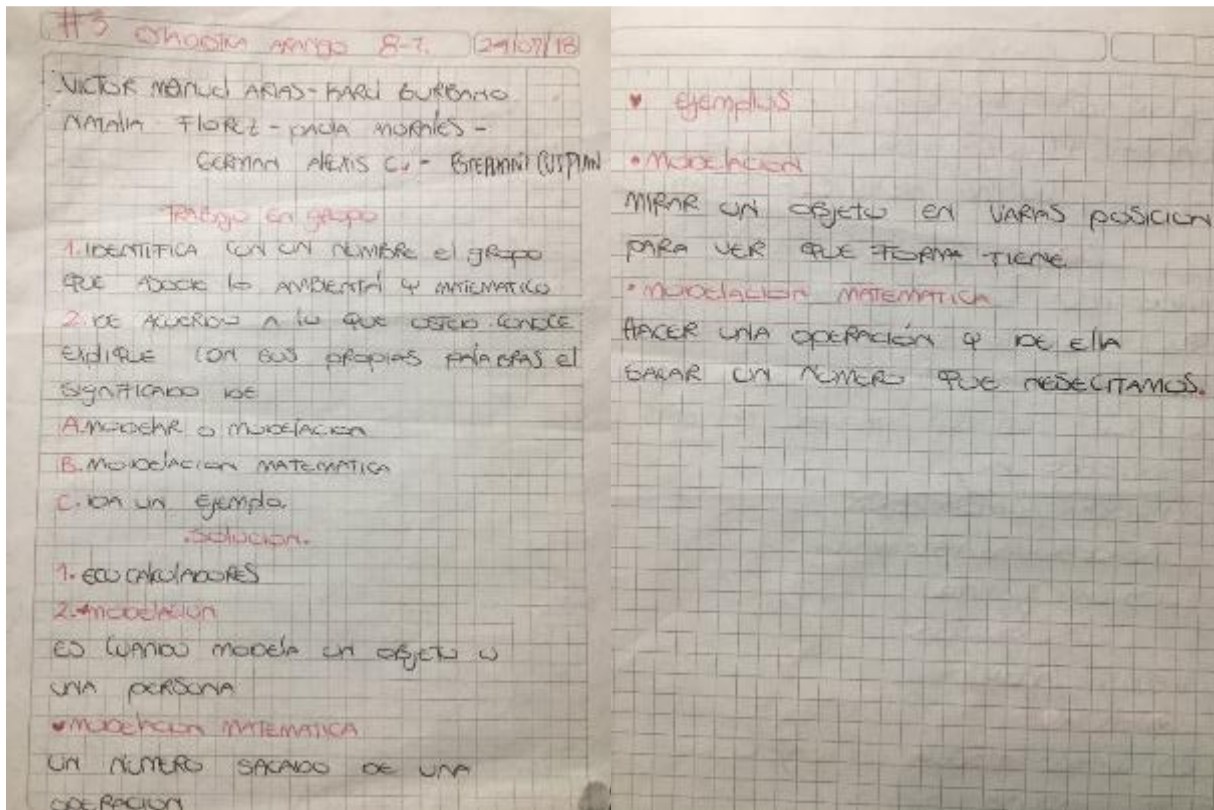 #3 ARANGO 8-7. 24/07/18
VICTOR MANUEL ARIAS - KAROL BURBANO
NATALIA FLOREZ - PAULA MORALES -
GERMAN ALEXIS C. - ESTEPHANI CUSPIAN
TRABAJO EN GRUPO
1. IDENTIFICA CON UN NUMBRE el gRUPO
QUE ASOCIE lo AMBIENTAl Y MATEMATICO
2. DE ACUERDO A lo QUE USTED CONOCE
EXPlIQUE CON SUS PROPIAS PAlABRAS El
SIGNIFICADO DE
A. MODElAR O MODElACION
B. MODElACION MATEMATICA
C. DA UN EJEMPlO.
.SOlUCION.
1. ECO CAlCUlADORES
2. MODElACION
ES CUANDO MODElA UN OBJETO O
UNA PERSONA
♥ MODElACION MATEMATICA
UN NUMERO SACADO DE UNA
OPERACION
♥ EJEMPlOS
• MODElACION
MIRAR UN OBJETO EN VARIAS POSICION
PARA VER QUE FORMA TIENE
• MODElACION MATEMATICA
HACER UNA OPERACIÓN Y DE EllA
SACAR UN NUMERO QUE NESECITAMOS.